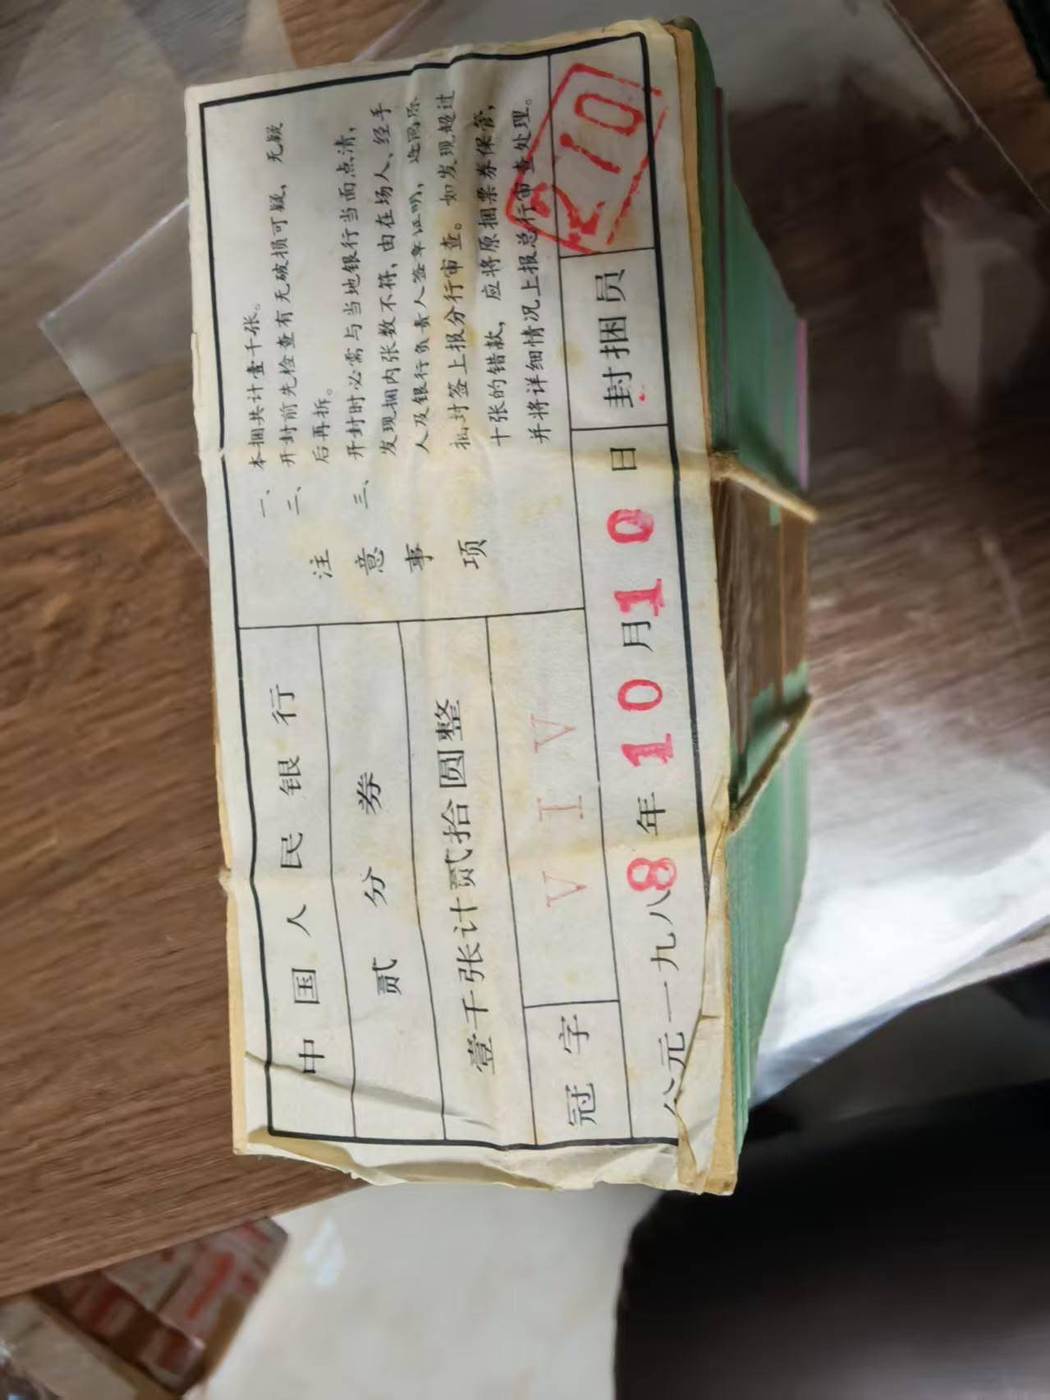 中国人民银行
贰分券
壹千张计贰拾圆整
冠字 V I V
公元一九八8年10月10日
封捆员
210
注意事项
一、本捆共计壹千张。
二、开封前先检查有无破损可疑，无疑
后再拆。
三、开封时必需与当地银行当面点清，
发现捆内张数不符，由在场人、经手
人及银行负责人签章证明，连同原
捆封签上报分行审查。如发现超过
十张的错款，应将原捆票券保管，
并将详细情况上报总行审查处理。